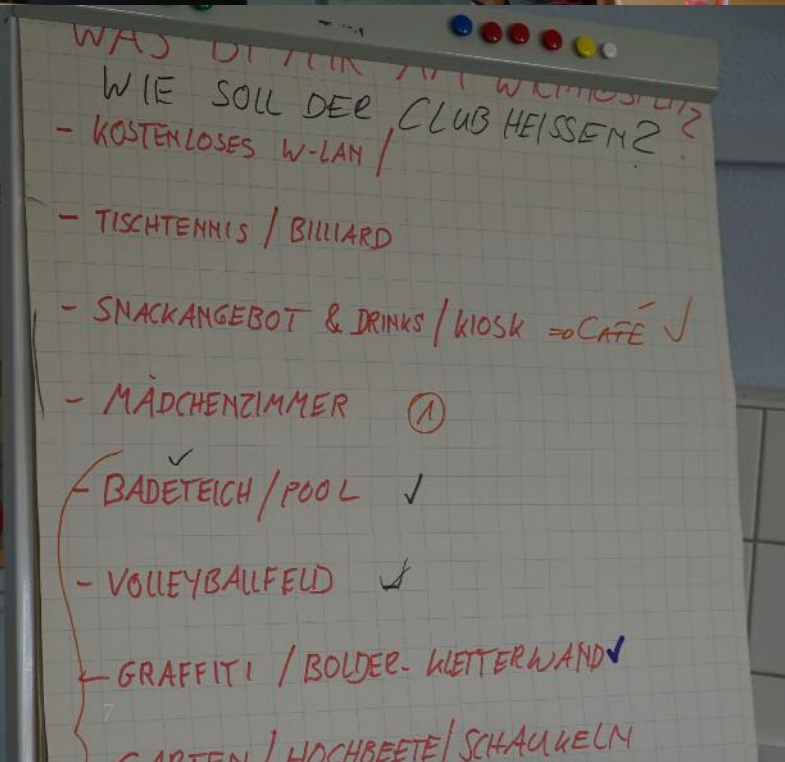 WAS IST MIR AM WICHTIGSTEN?
WIE SOLL DER CLUB HEISSEN?
- KOSTENLOSES W-LAN /
- TISCHTENNIS / BILLIARD
- SNACKANGEBOT & DRINKS / KIOSK ⇒ CAFÉ ✓
- MÄDCHENZIMMER ①
- BADETEICH / POOL ✓
- VOLLEYBALLFELD ✓
- GRAFFITI / BOLDER- KLETTERWAND ✓
7
GARTEN / HOCHBEETE / SCHAUKELN